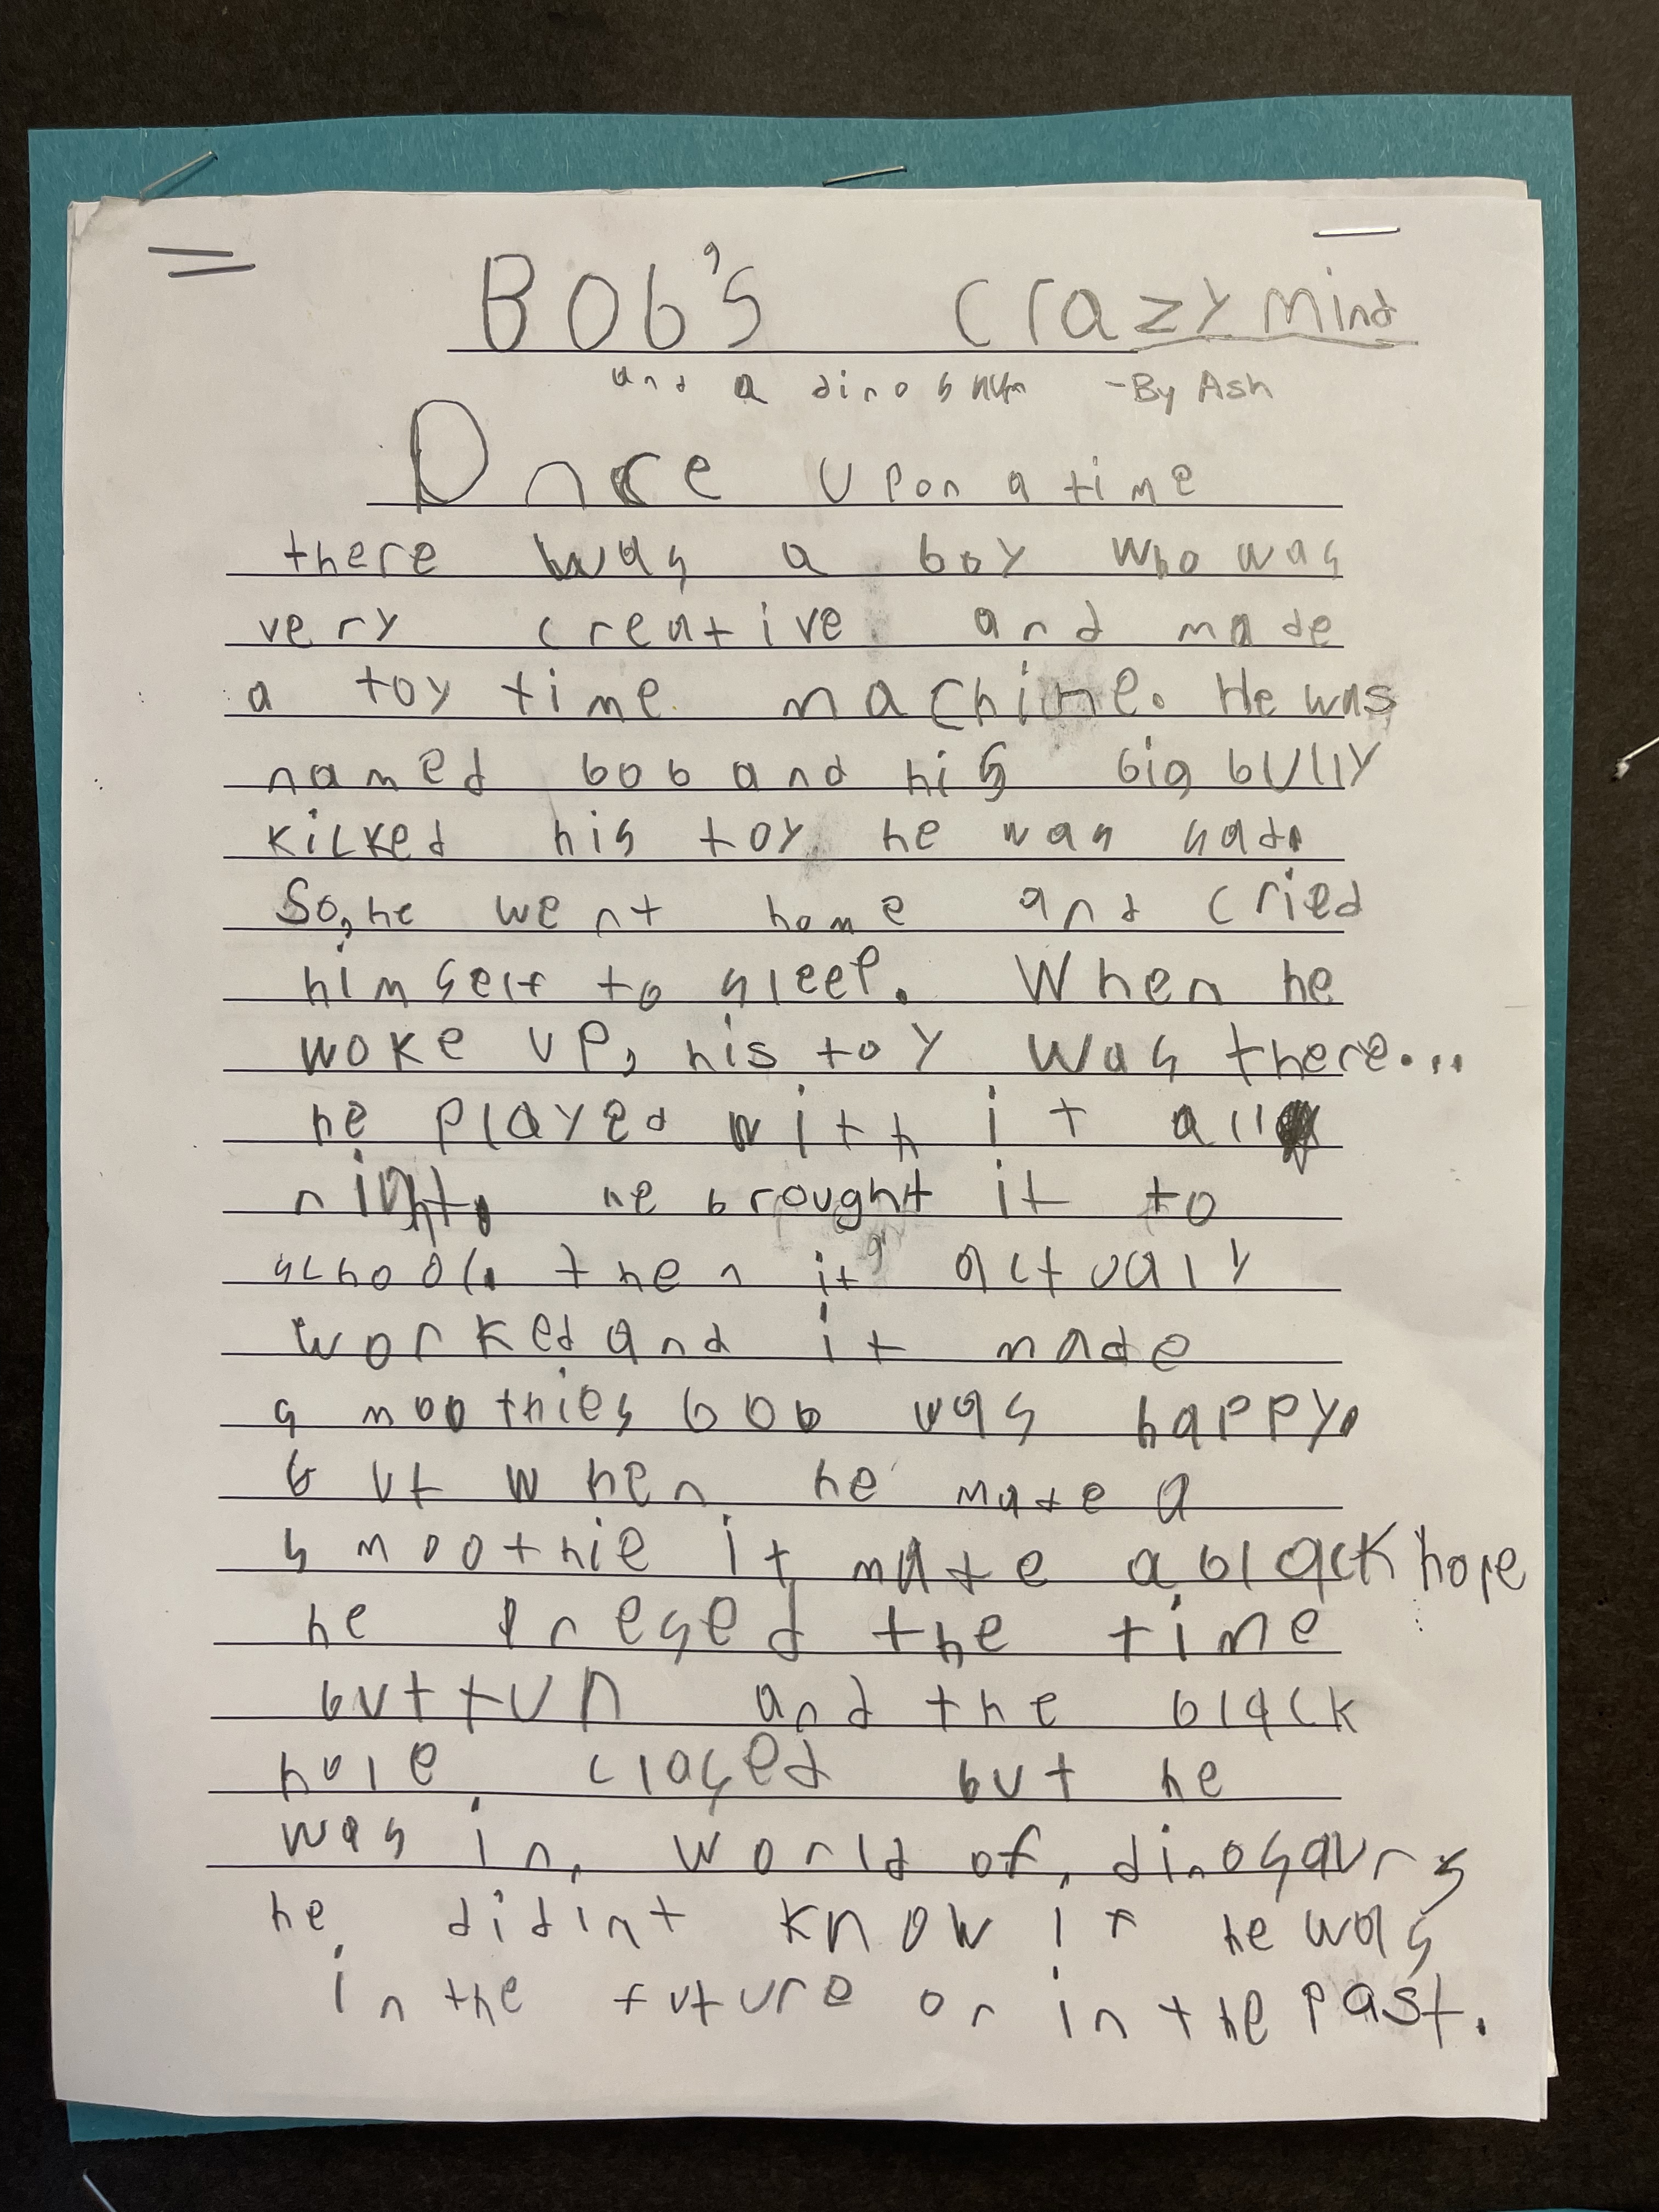 BOb's crazy mind
and a dinosaur -By Ash
Once upon a time
there was a boy who was
very creative and made
a toy time machine. He was
named bob and his big bully
kicked his toy he was sad.
So, he went home and cried
himself to sleep. When he
woke up, his toy was there...
he played with it all
night. he brought it to
school. then it actualy
worked and it made
smoothies bob was happy.
but when he made a
smoothie it made a black hope
he presed the time
buttun and the black
hole closed but he
was in world of dinosaurs
he didint know if he was
in the future or in the past.